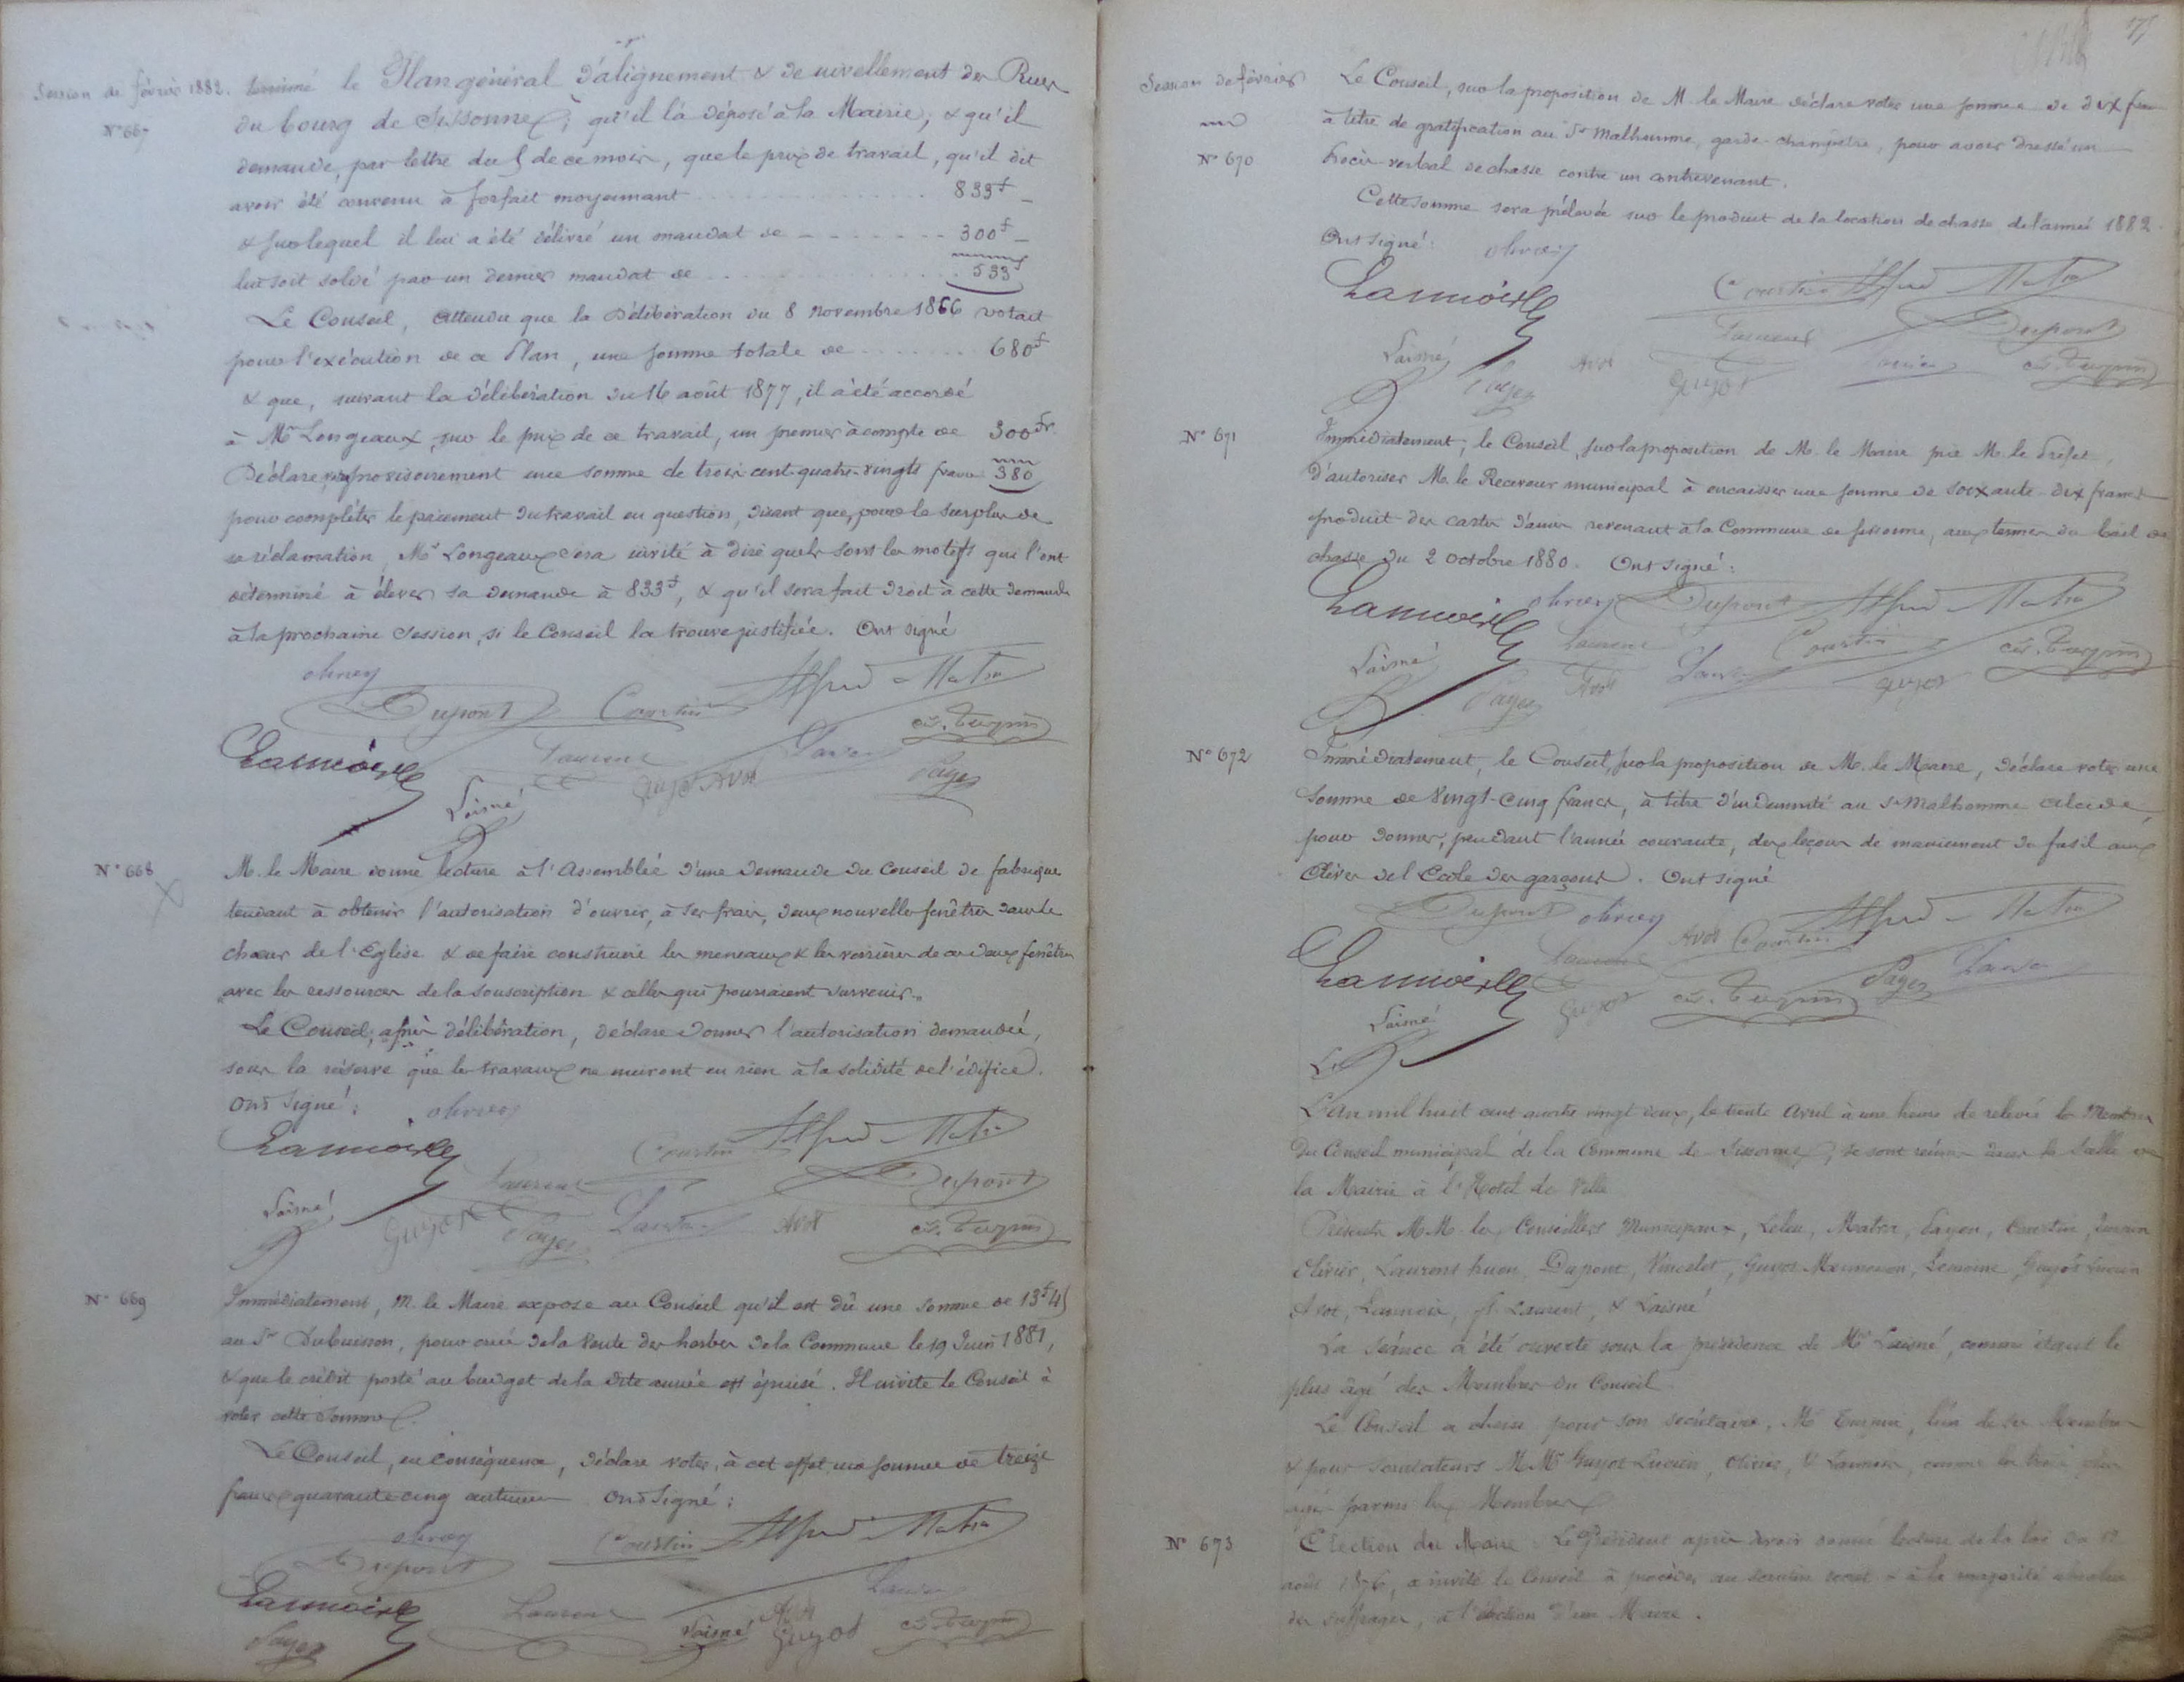 Session de février 1882.
N° 667
terminé le Plan général d'alignement & de nivellement des Rues
du bourg de Sissonne, qu'il l'a déposé à la Mairie, & qu'il
demande, par lettre du 5 de ce mois, que le prix de travail, qu'il dit
avoir été convenu à forfait moyennant 833f
& sur lequel il lui a été délivré un mandat de 300f
lui soit soldé par un dernier mandat de 533f
Le Conseil, attendu que la délibération du 8 novembre 1866 votait
pour l'exécution de ce Plan, une somme totale de 680f
& que, suivant la délibération du 16 août 1877, il a été accordé
à Mr Longeaux, sur le prix de ce travail, un premier àcompte de 300fr.
Déclare, provisoirement une somme de trois cent quatre-vingts francs 380
pour compléter le paiement du travail en question, disant que, pour le surplus de
sa réclamation, Mr Longeaux sera invité à dire quels sont les motifs qui l'ont
déterminé à élever sa demande à 833f, & qu'il sera fait droit à cette demande
à la prochaine Session, si le Conseil la trouve justifiée. Ont signé
olivier
Dupont Courtin Alfred Matra
Lannois Laurent ch. Turpin
Laisné Guyot Avot Payen
N° 668
M. le Maire donne lecture à l'Assemblée d'une demande du Conseil de fabrique
tendant à obtenir l'autorisation d'ouvrir, à ses frais, deux nouvelles fenêtres dans le
chœur de l'Eglise & de faire construire les meneaux & les verrières de ces deux fenêtres
„avec les ressources de la souscription & celles qui pourraient survenir.„
Le Conseil, après délibération, déclare donner l'autorisation demandée,
sous la réserve que les travaux ne nuiront en rien à la solidité de l'édifice.
Ont signé: olivier
Lannois Courtin Alfred Matra
Laurent Dupont
Laisné Guyot Payen Avot ch. Turpin
N° 669
Immédiatement, M. le Maire expose au Conseil qu'il est dû une somme de 13f45
au Sr Dubuisson, pour criée de la vente des herbes de la Commune le 19 Juin 1881,
& que le crédit porté au budget de la dite année est épuisé. Il invite le Conseil à
voter cette somme.
Le Conseil, en conséquence, déclare voter, à cet effet, une somme de treize
francs quarante cinq centimes Ont signé:
olivier Courtin Alfred Matra
Dupont
Lannois Laurent Laisné Avot Guyot ch. Turpin
Payen
175
Session de février
N° 670
Le Conseil, sur la proposition de M. le Maire déclare voter une somme de dix fr
à titre de gratification au Sr Malhomme, garde-champêtre, pour avoir dressé un
Procès-verbal de chasse contre un contrevenant.
Cette somme sera prélevée sur le produit de la location de chasse de l'année 1882.
Ont signé: olivier
Lannois Courtin Alfred Matra
Laurent Dupont
Laisné Payen Avot Guyot ch. Turpin
N° 671
Immédiatement, le Conseil, sur la proposition de M. le Maire prie M. le Préfet,
d'autoriser M. le Receveur municipal à encaisser une somme de soixante-dix francs
produit des cartes d'amis revenant à la Commune de Sissonne, aux termes du bail de
chasse du 2 Octobre 1880. Ont signé:
Lannois olivier Dupont Alfred Matra
Laisné Laurent Courtin ch. Turpin
Payen Avot Guyot
N° 672
Immédiatement, le Conseil, sur la proposition de M. le Maire, déclare voter une
somme de Vingt-Cinq francs, à titre d'indemnité au Sr Malhomme Alcide,
pour donner, pendant l'année courante, des leçons de maniement du fusil aux
Elèves de l'Ecole des garçons. Ont signé
Dupont olivier Alfred Matra
Lannois Laurent Avot Courtin
Laisné Guyot ch. Turpin Payen
L'An mil huit cent quatre vingt deux, le trente Avril à une heure de relevée les Membres
du Conseil municipal de la Commune de Sissonne, se sont réunis dans la Salle de
la Mairie à l'Hotel de Ville
Présents MM. les Conseillers Municipaux, Leleu, Matra, Payen, Courtin, Turpin
Olivier, Laurent huon, Dupont, Vincelet, Guyot Mennesson, Lemoine, Guyot Lucien
Avot, Lannois, Laurent, & Laisné
La séance a été ouverte sous la présidence de Mr Laisné, comme étant le
plus âgé des Membres du Conseil
Le Conseil a choisi pour son secrétaire, Mr Turpin, l'un de ses Membres
& pour scrutateurs MMrs Guyot Lucien, Olivier, & Lannois, comme les trois plus
parmi les Membres
N° 673
Election du Maire: Le Président après avoir donné lecture de la loi du 12
août 1876, a invité le Conseil à procéder au scrutin secret & à la majorité absolue
des suffrages, à l'élection d'un Maire.